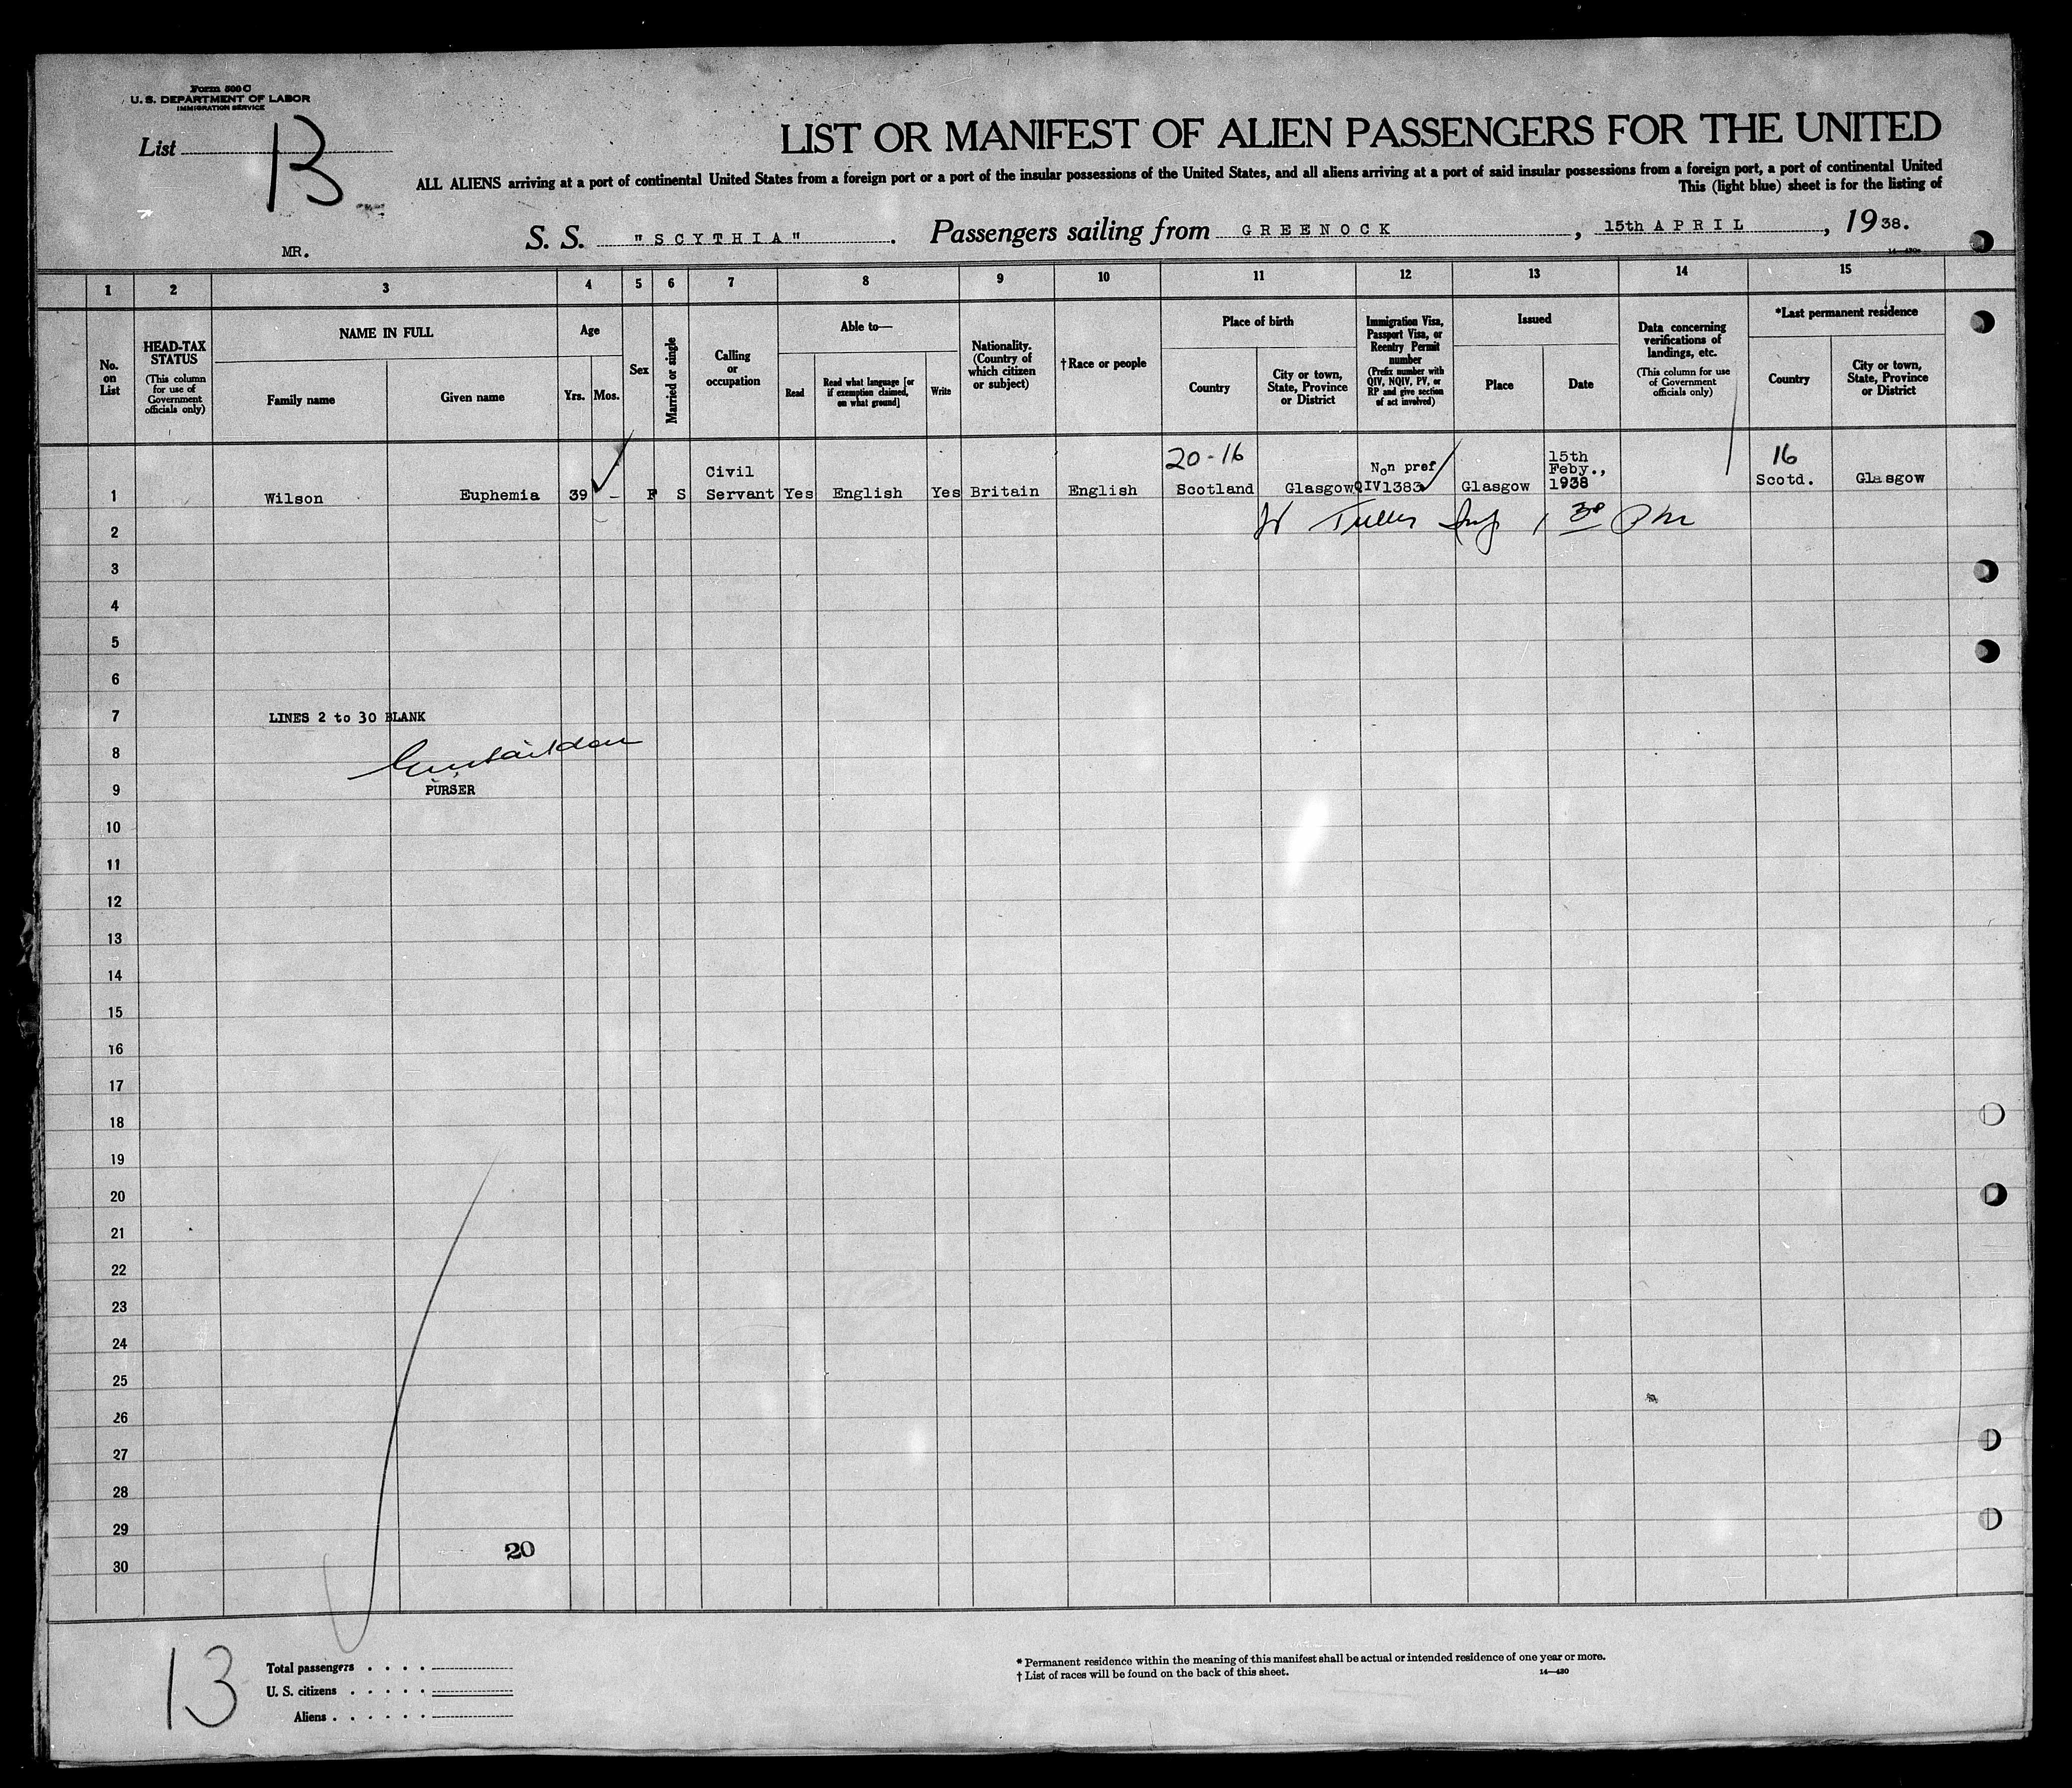 Form 500 C
U. S. DEPARTMENT OF LABOR
IMMIGRATION SERVICE
List 13
LIST OR MANIFEST OF ALIEN PASSENGERS FOR THE UNITED
ALL ALIENS arriving at a port of continental United States from a foreign port or a port of the insular possessions of the United States, and all aliens arriving at a port of said insular possessions from a foreign port, a port of continental United
This (light blue) sheet is for the listing of
MR.
S. S. "SCYTHIA". Passengers sailing from GREENOCK, 15th APRIL, 1938.
14—430
1 2 3 4 5 6 7 8 9 10 11 12 13 14 15
No. on List
HEAD-TAX STATUS
(This column for use of Government officials only)
NAME IN FULL
Family name
Given name
Age
Yrs. Mos.
Sex
Married or single
Calling or occupation
Able to—
Read
Read what language [or if exemption claimed, on what ground]
Write
Nationality. (Country of which citizen or subject)
†Race or people
Place of birth
Country
City or town, State, Province or District
Immigration Visa, Passport Visa, or Reentry Permit number
(Prefix number with QIV, NQIV, PV, or RP and give section of act involved)
Issued
Place
Date
Data concerning verifications of landings, etc.
(This column for use of Government officials only)
*Last permanent residence
Country
City or town, State, Province or District
20-16 Non pref 15th Feby., 16
1 Wilson Euphemia 39 - F S Civil Servant Yes English Yes Britain English Scotland Glasgow QIV1383 Glasgow 1938 Scotd. Glasgow
2 1 30 PM
3
4
5
6
7 LINES 2 to 30 BLANK
8
9 PURSER
10
11
12
13
14
15
16
17
18
19
20
21
22
23
24
25
26
27
28
29 20
30
13
Total passengers . . . .
U. S. citizens . . . . .
Aliens . . . . . .
* Permanent residence within the meaning of this manifest shall be actual or intended residence of one year or more.
† List of races will be found on the back of this sheet.
14—430